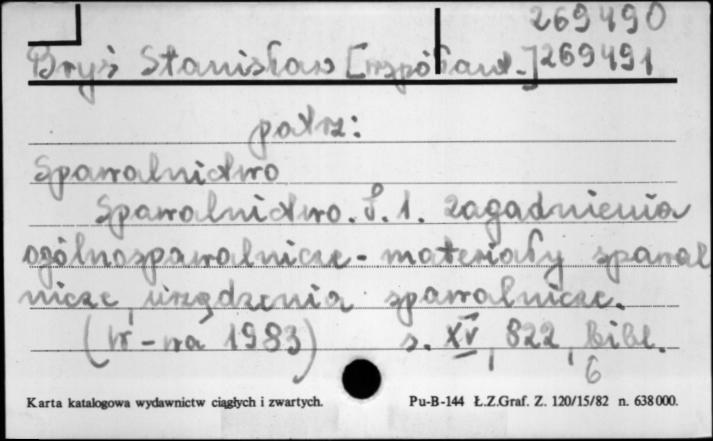 269490
Bryś Stanisław [współaut.] 269491
patrz:
Spawalnictwo
Spawalnictwo. T. 1. Zagadnienia
ogólnospawalnicze - materiały spawal
nicze, urządzenia spawalnicze.
(W-wa 1983) s. XV, 822, bibl.
6
Karta katalogowa wydawnictw ciągłych i zwartych. Pu-B-144 Ł.Z.Graf. Z. 120/15/82 n. 638000.